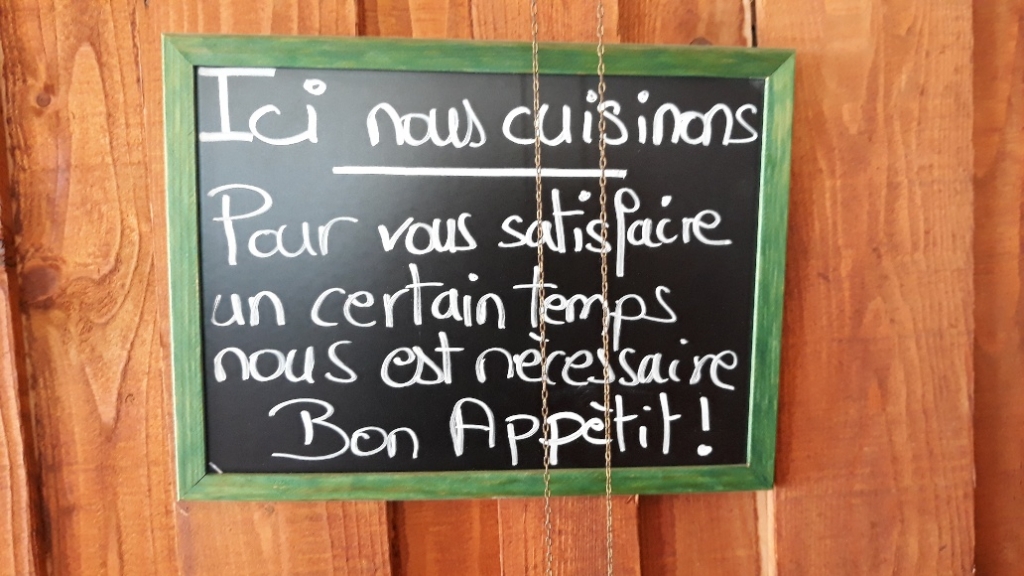 Ici nous cuisinons
Pour vous satisfaire
un certain temps
nous est nécessaire
Bon Appétit !